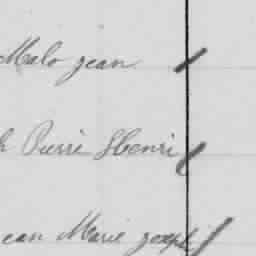 Malo jean
h Pierre Henri
ean Marie joseph